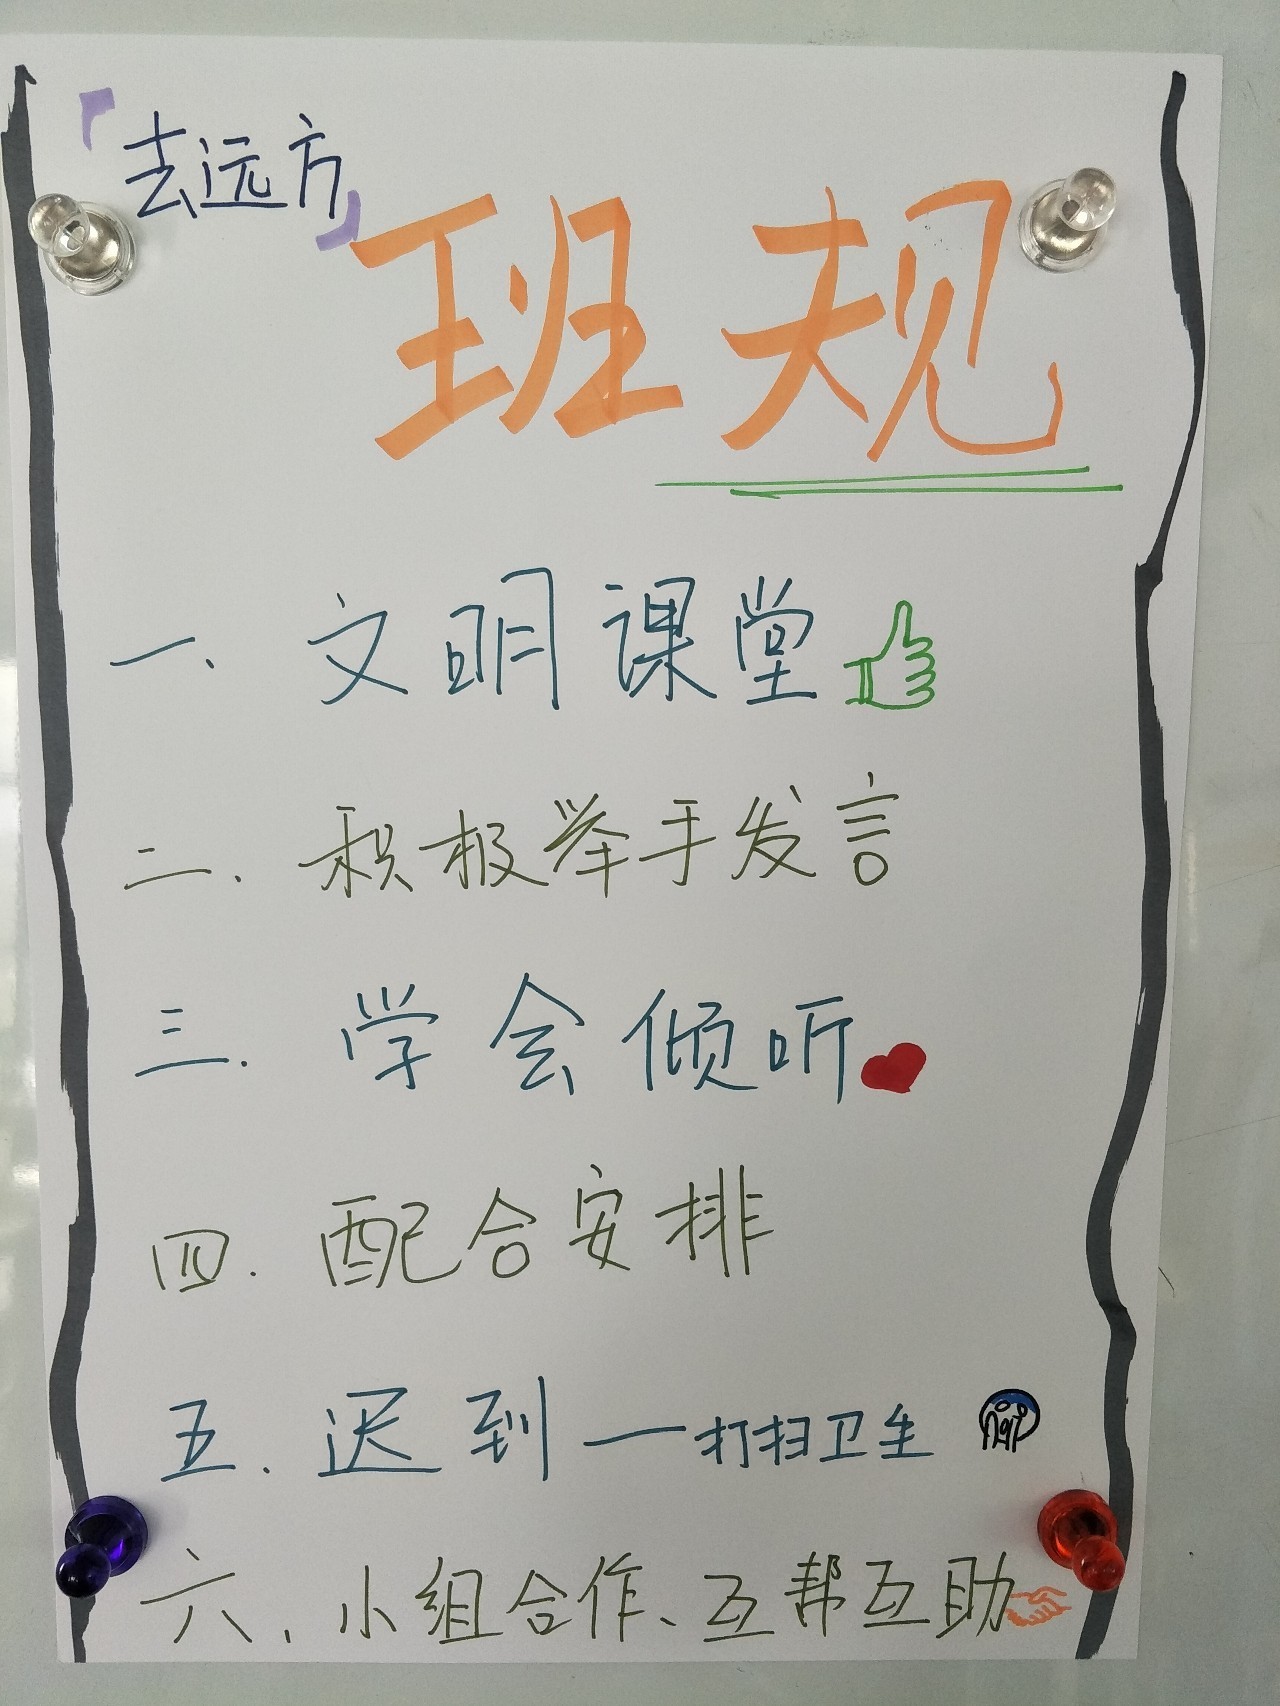 「去远方」
班规
一、文明课堂
二、积极举手发言
三、学会倾听
四、配合安排
五、迟到——打扫卫生
六、小组合作、互帮互助